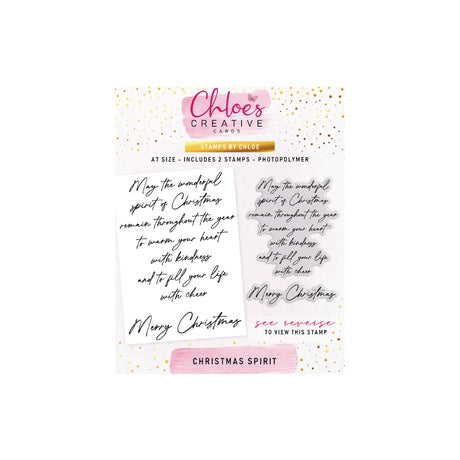 Chloe's
CREATIVE
CARDS
STAMPS BY CHLOE
A7 SIZE - INCLUDES 2 STAMPS - PHOTOPOLYMER
May the wonderful
spirit of Christmas
remain throughout the year
to warm your heart
with kindness
and to fill your life
with cheer
Merry Christmas
May the wonderful
spirit of Christmas
remain throughout the year
to warm your heart
with kindness
and to fill your life
with cheer
Merry Christmas
see reverse
TO VIEW THIS STAMP
CHRISTMAS SPIRIT